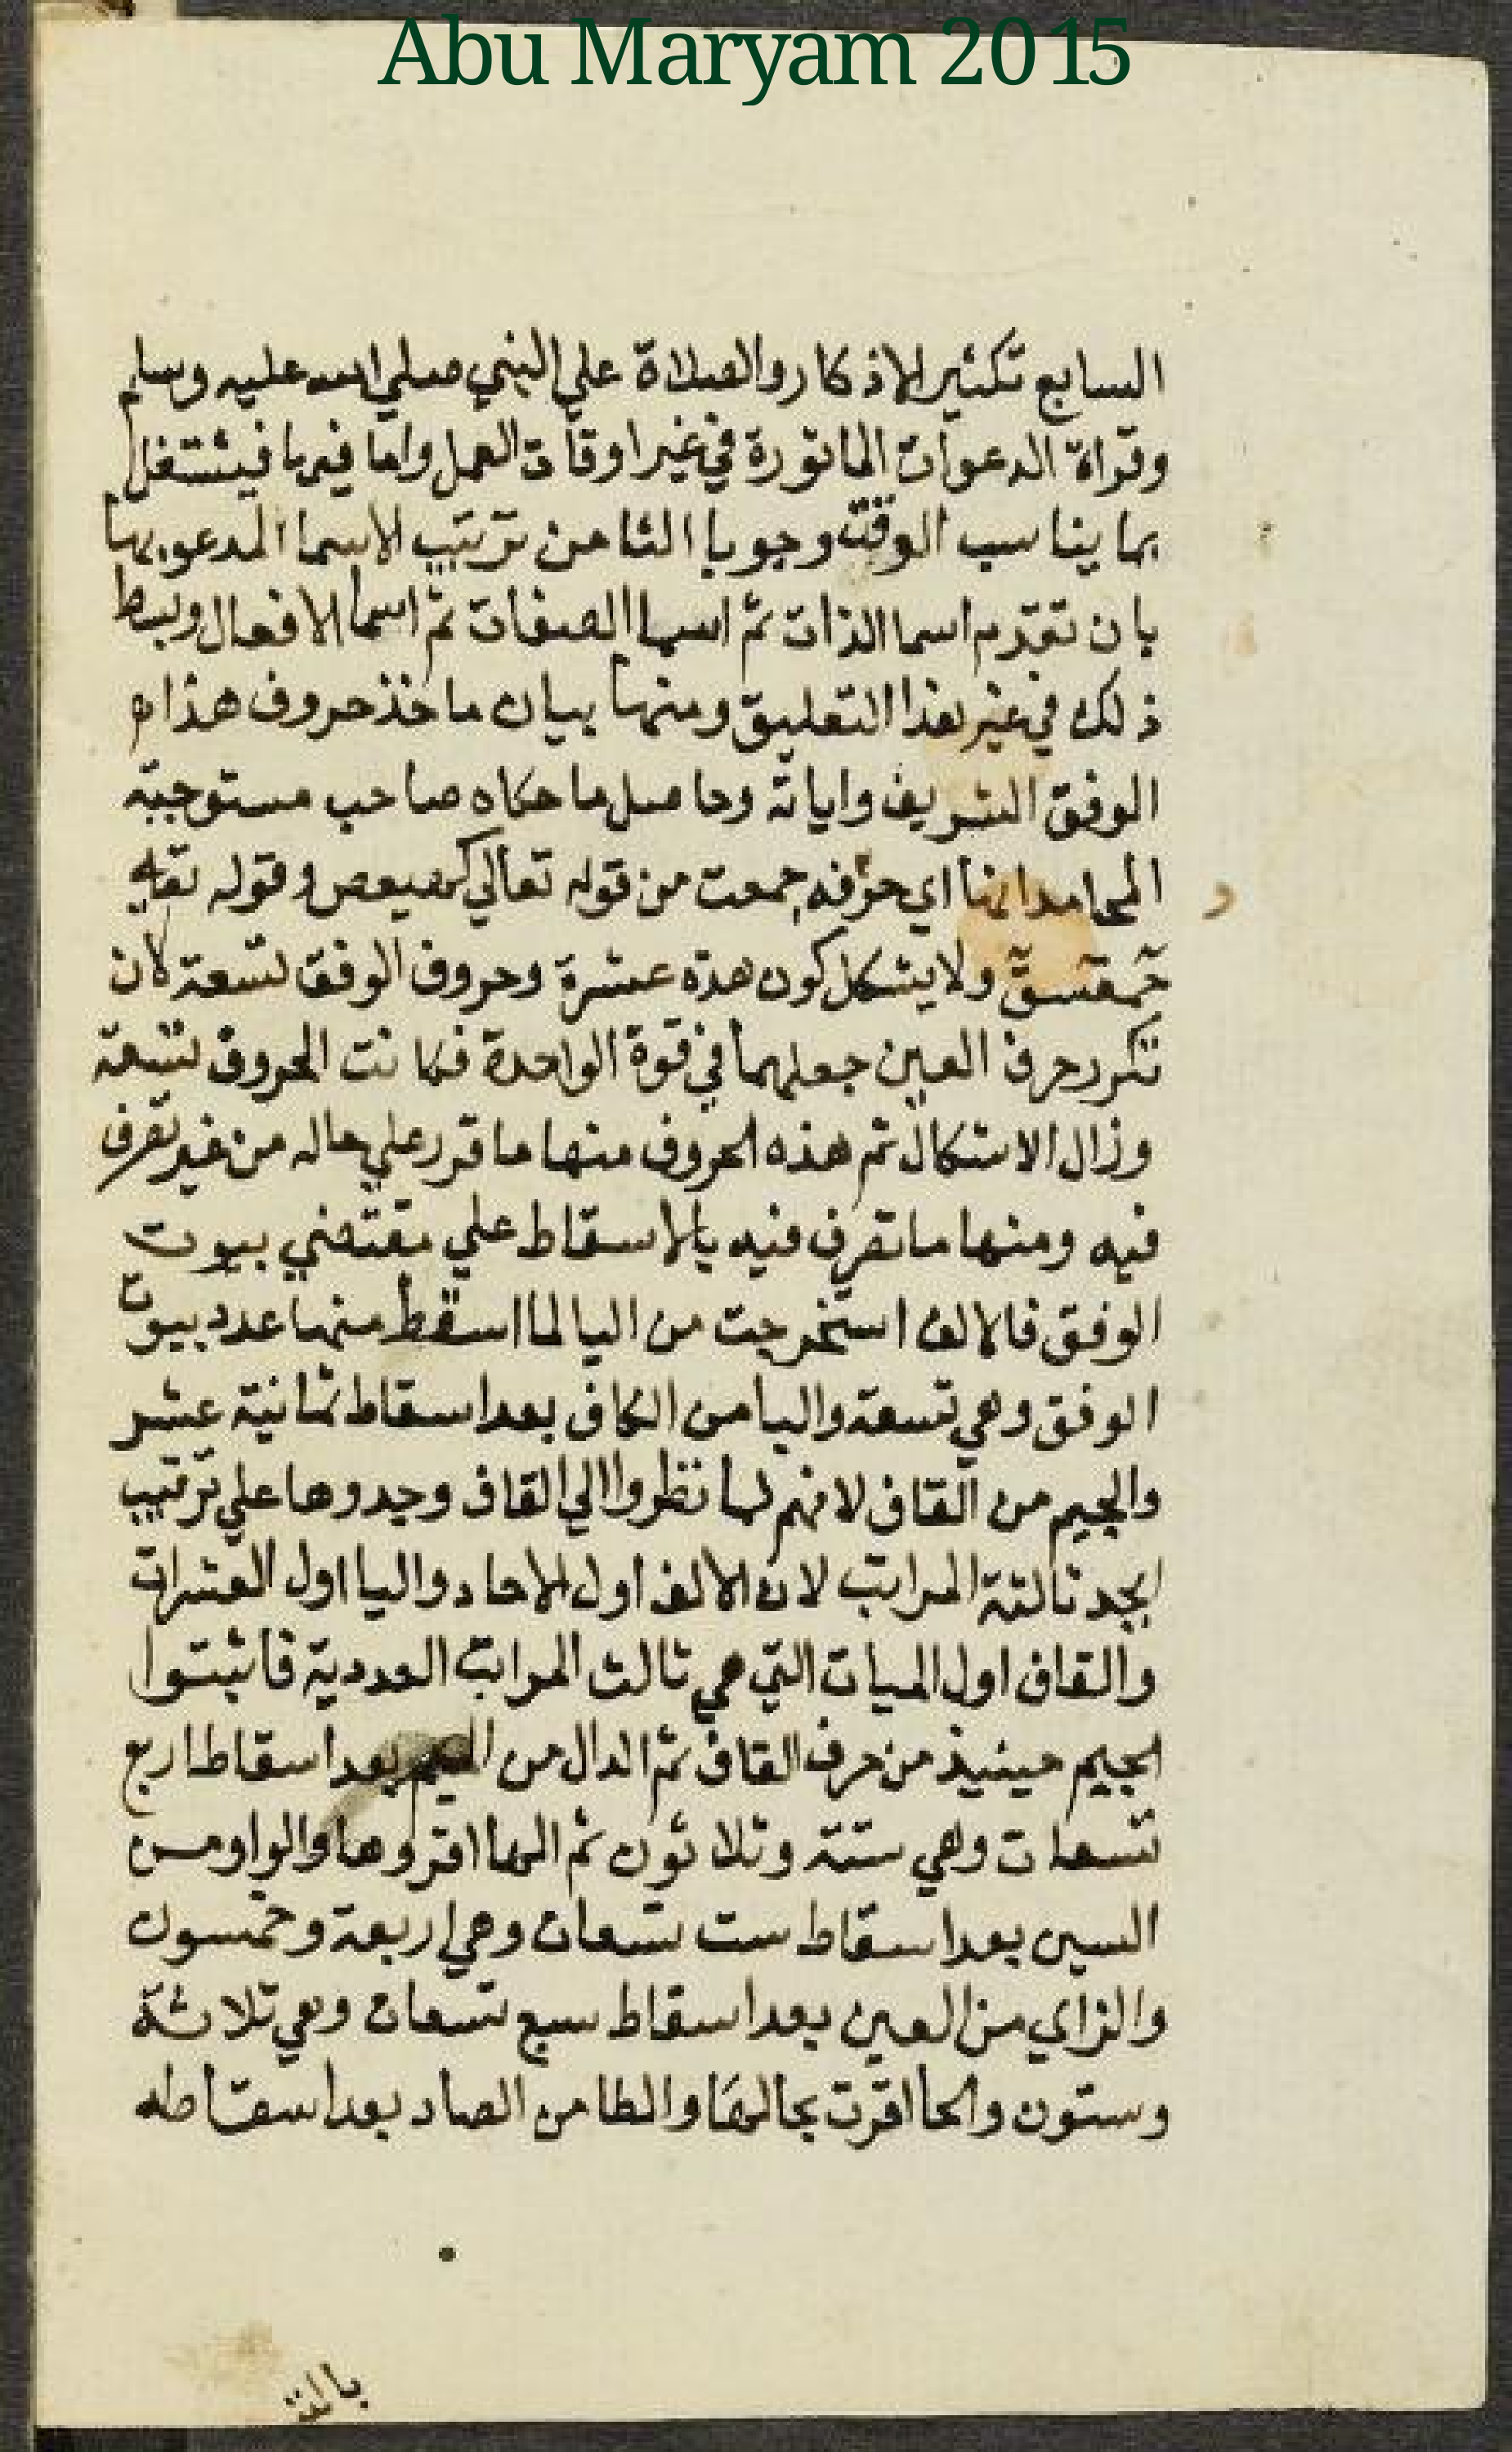 Abu Maryam 2015
السابع تكثير الاذكار والصلاة علي النبي صلي الله عليه وسلم
وقراة الدعوات الماثورة في غير اوقات العمل واما فيها فيشتغل
بما يناسب الوقت وجوبا الثامن ترتيب الاسما المدعو بها
بان تقدم اسما الذات ثم اسما الصفات ثم اسما الافعال وبسط
ذلك في غير هذا التعليق ومنها بيان ماخذ حروف هذا
الوفق الشريف واياته وحاصل ما حكاه صاحب مستوجبة
المحامد اي حرفه جمعت من قوله تعالي كهيعص وقوله تعالي
حمعسق ولا يشكل كون هذه عشرة وحروف الوفق تسعة لان
تكرر حرف العين جعلهما في قوة الواحدة فكانت الحروف تسعة
وزال الاشكال ثم هذه الحروف منها ما قرر علي حاله من غير تصرف
فيه ومنها ما تصرف فيه بالاسقاط علي مقتضي بيوت
الوفق فالالف استخرجت من اليا لما اسقط منها عدد بيوت
الوفق وهي تسعة واليا من الكاف بعد اسقاط ثمانية عشر
والجيم من القاف لانهم لما نظروا الي القاف وجدوها علي ترتيب
ابجد ثالثة المراتب لان الالف اول الاحاد واليا اول العشرات
والقاف اول الميات التي هي ثالث المراتب العددية فاثبتوا
الجيم حينيذ من حرف القاف ثم الدال من الميم بعد اسقاط اربع
تسعات وهي ستة وثلاثون ثم الها اقروها والواو من
السين بعد اسقاط ست تسعات وهي اربعة وخمسون
والزاي من العين بعد اسقاط سبع تسعات وهي ثلاثة
وستون والحا اقرت بحالها والطا من الصاد بعد اسقاطه